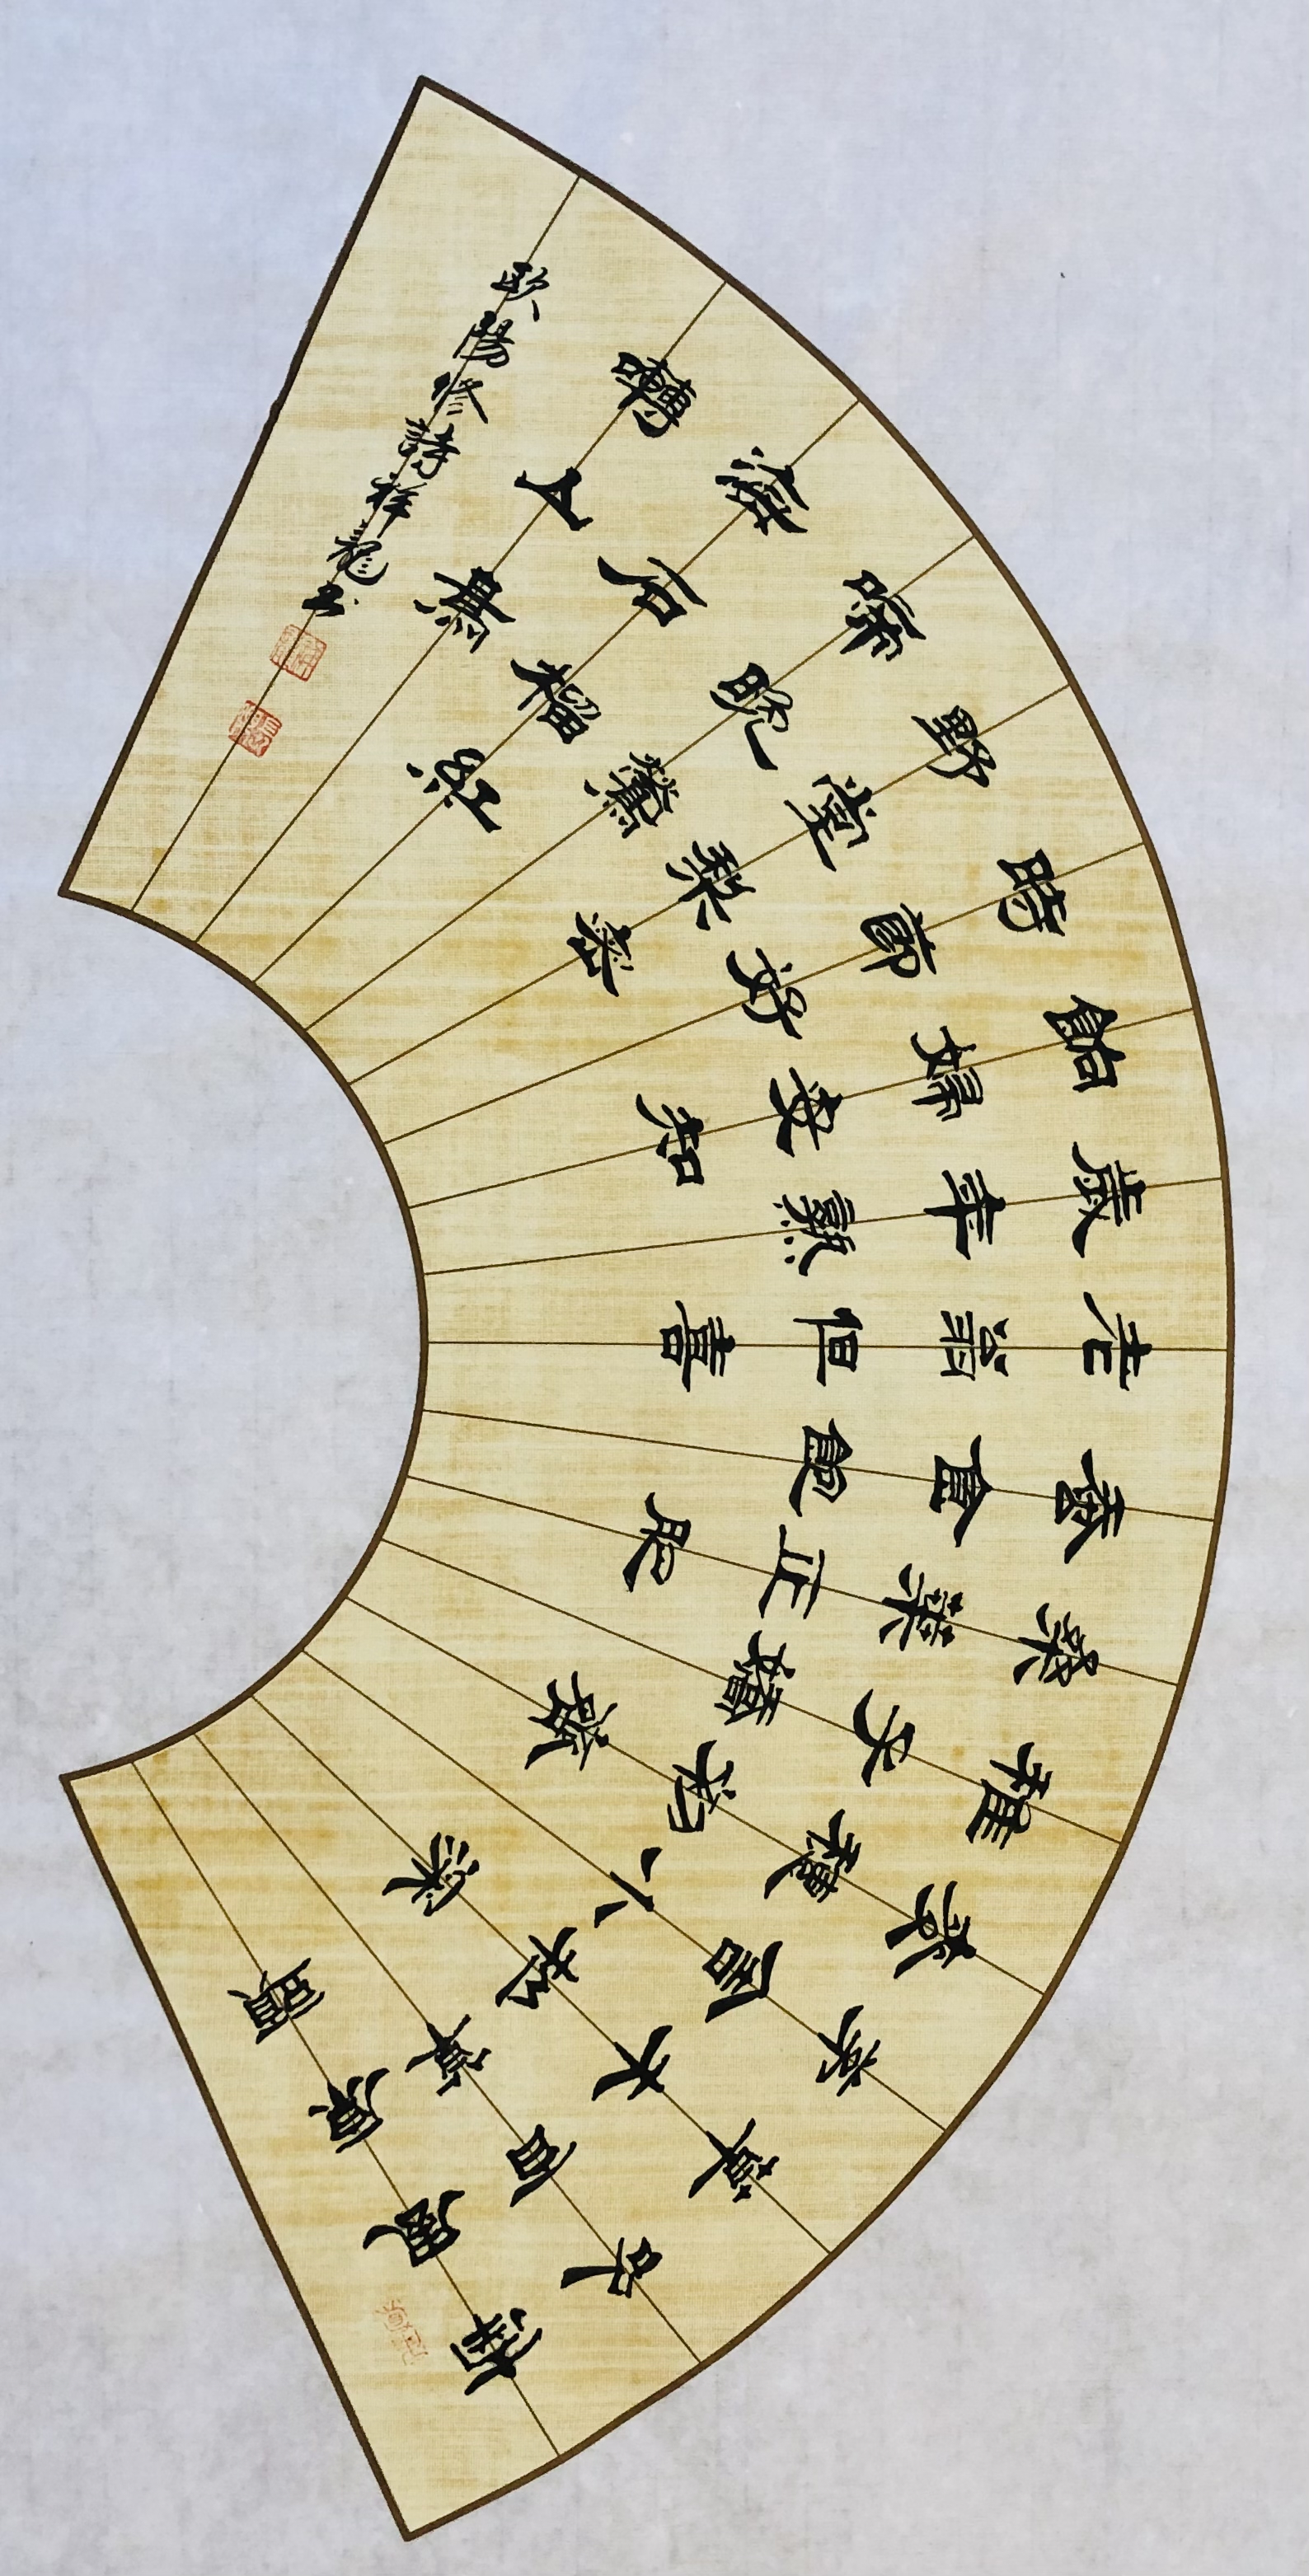 南風原頭
吹百草
草木松深
茅舍小
麥穗初齊
稚子嬌
桑葉正肥
蚕食飽
老翁但喜
歲年熟
餉婦安知
時節好
野堂梨密
啼晚鶯
海石榴紅
囀山鳥
欧陽修詩祥龍書